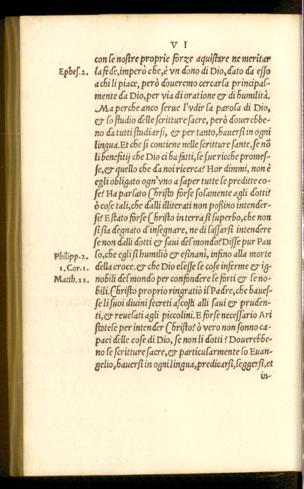 VI
con le nostre proprie forze aquistare ne meritar
Ephes.2. la fede, imperò che, è vn dono di Dio, dato da esso
a chi li piace, però doueremo cercarla principal-
mente da Dio, per via di oratione & di humilità.
Ma perche anco serue l'vdir la parola di Dio,
& lo studio delle scritture sacre, però douerebbe-
no da tutti studiarsi, & per tanto, hauersi in ogni
lingua. Et che si contiene nelle scritture sante, se nõ
li benefitij che Dio ci ha fatti, le sue ricche promes-
se, & quello che da noi ricerca? Hor dimmi, non è
egli obligato ogn'vno a saper tutte le preditte co-
se? Ha parlato Christo forse solamente agli dotti?
ò cose tali, che dalli illitterati non possino intender-
si? E stato forse Christo in terra sì superbo, che non
si sia degnato d'insegnare, ne di lassarsi intendere
se non dalli dotti & saui del mondo? Disse pur Pau
Philipp.2. lo, che egli si humiliò & esinanì, infino alla morte
1.Cor.1. della croce. & che Dio elesse le cose inferme & ig-
Matth.11. nobili del mondo per confondere le forti & le no-
bili. Christo proprio ringratiò il Padre, che haues-
se li suoi diuini secreti ascosti alli saui & pruden-
ti, & reuelati agli piccolini. E forse necessario Ari
stotele per intender Christo? ò vero non sonno ca-
paci delle cose di Dio, se non li dotti? Douerebbe-
no le scritture sacre, & particularmente lo Euan-
gelio, hauersi in ogni lingua, predicarsi, leggersi, et
in